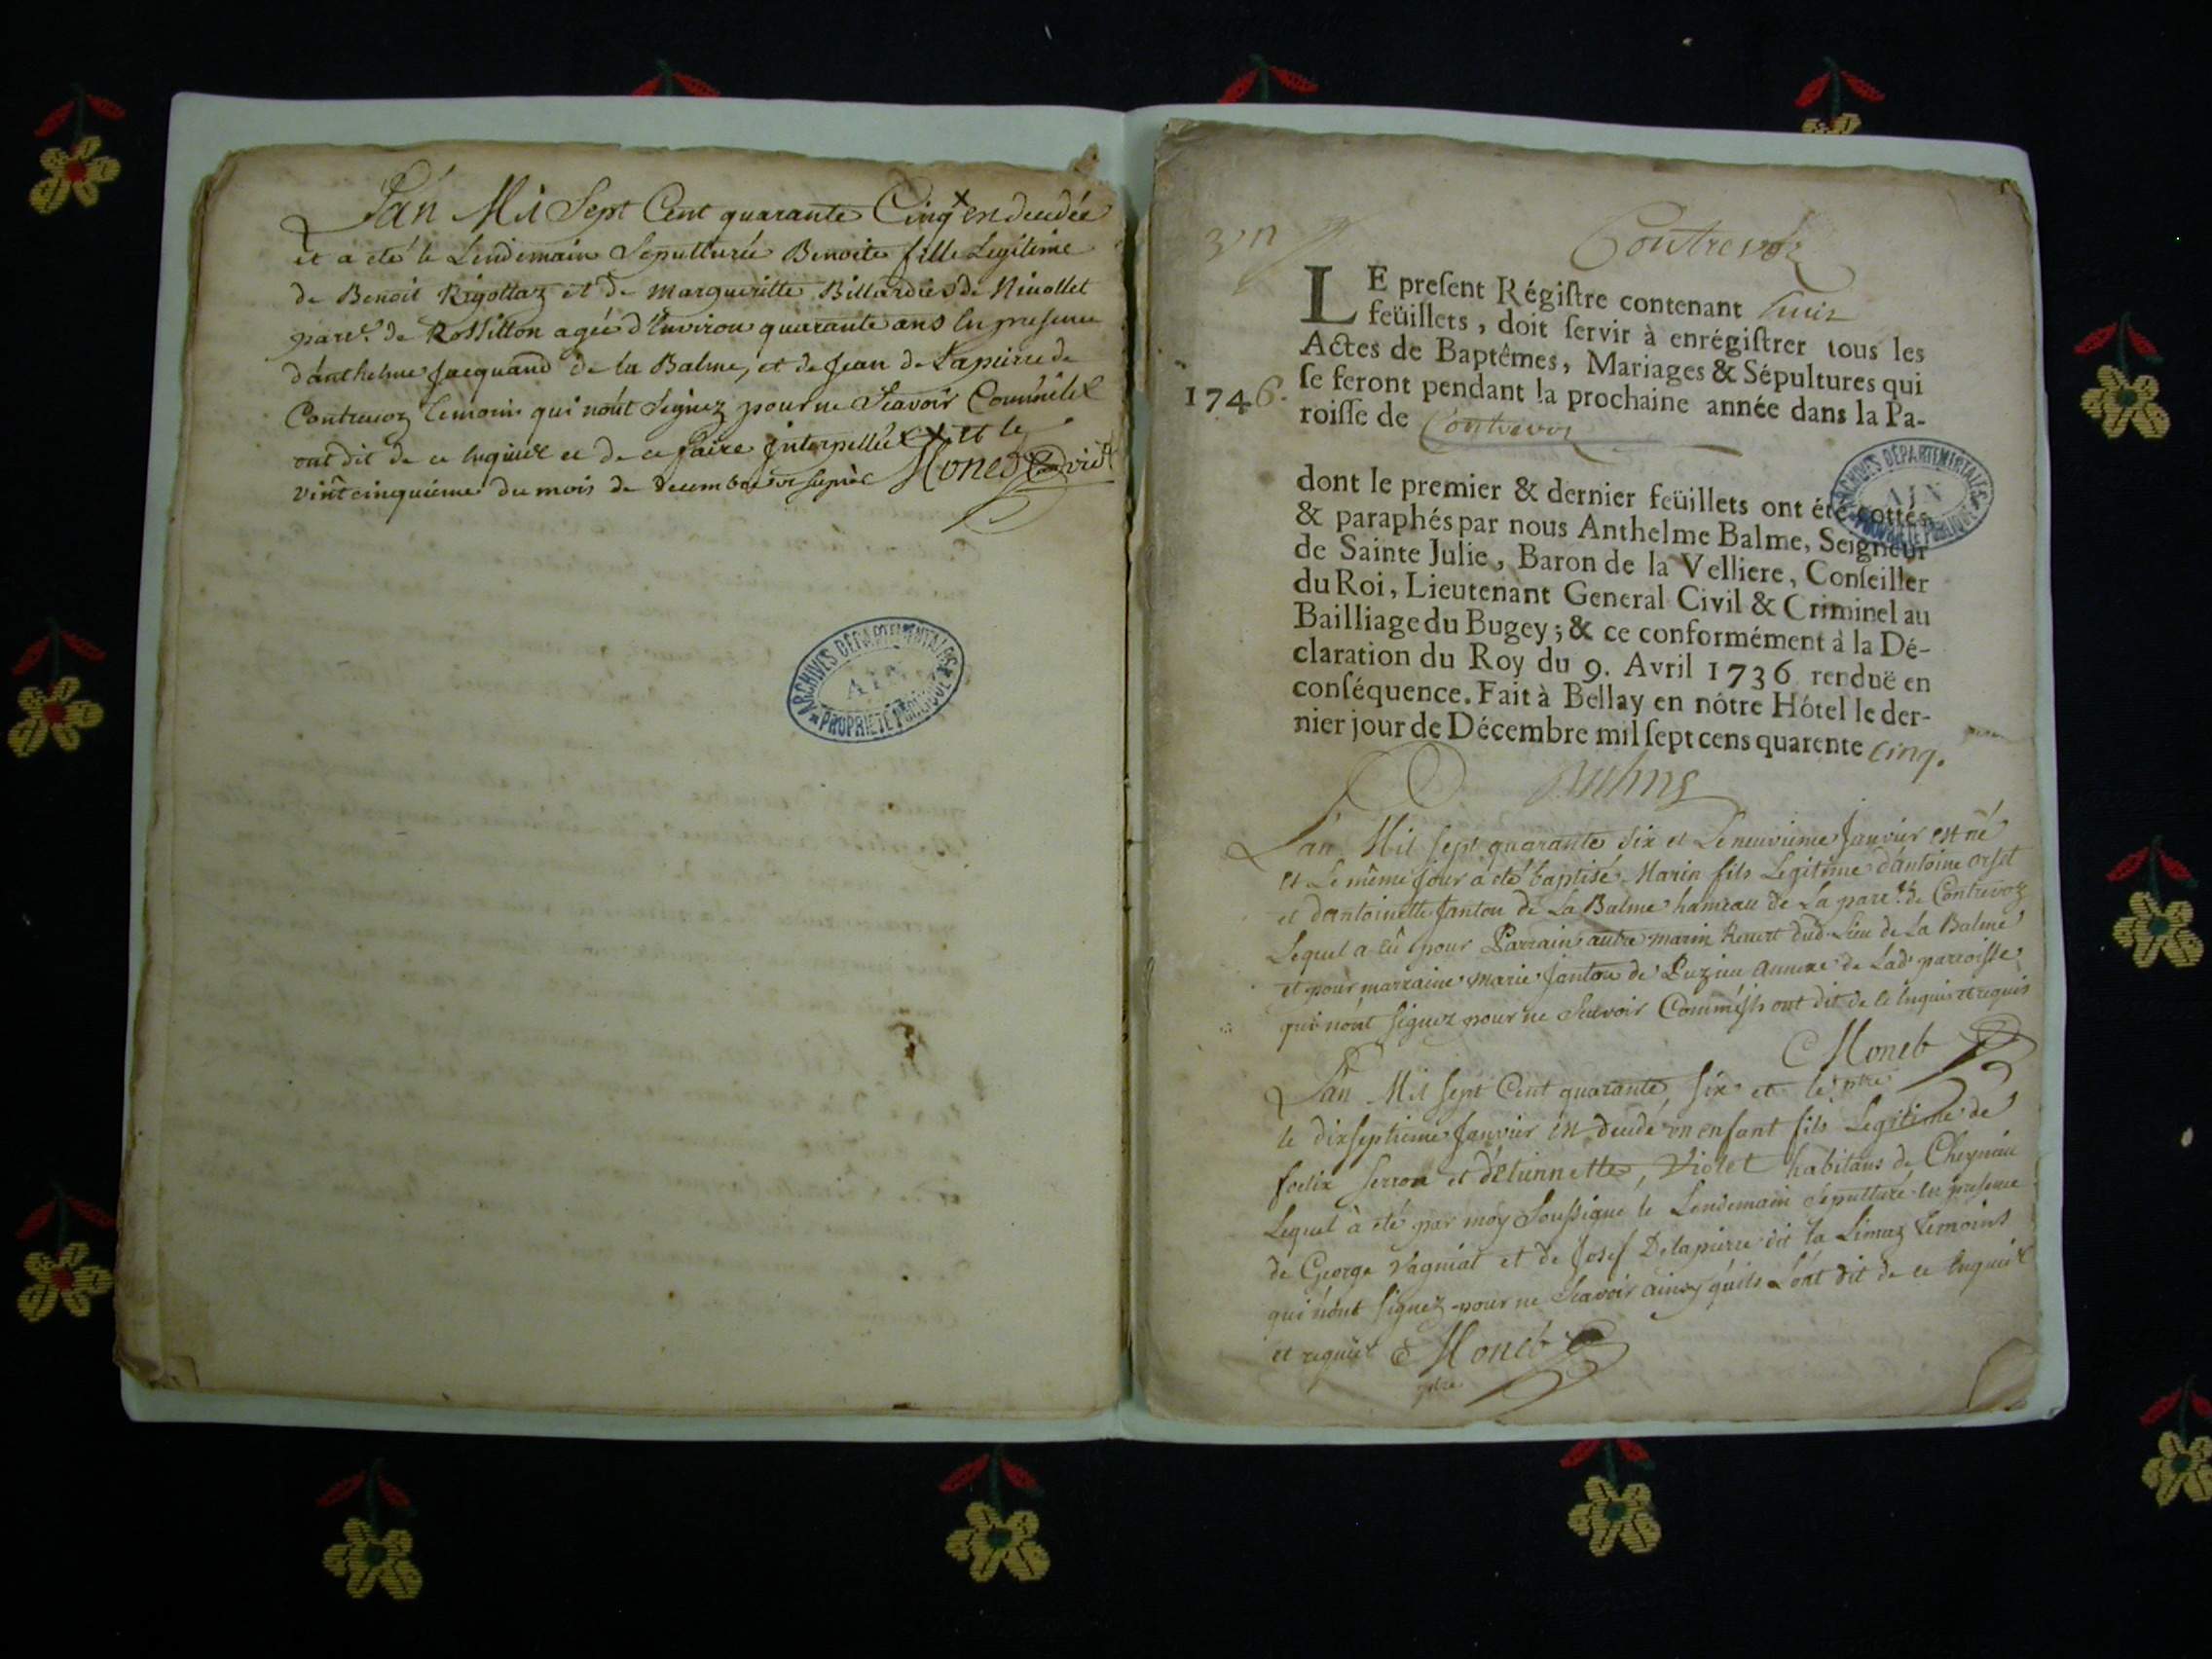 L'an Mil Sept Cent quarante Cinq x est decedée
et a eté le Lendemain Sepulturée Benoite fille Legitime
de Benoit Rigottaz et de Margueritte Billardies de Nivollet
parr.e de Rossillon agée d'Environ quarante ans En presence
d'anthelme Jacquand de la Balme, et de Jean de Lapierre de
Contrevoz temoins qui n'ont Signez pour ne Scavoir Comm'ils
ont dit de ce Enquis et de ce faire Interpellés x et le
vint cinquieme du mois de decembre Monet
ARCHIVES DEPARTEMENTALES
AIN
PROPRIETE PUBLIQUE
Contrevoz
LE preſent Régiſtre contenant huit
feüillets, doit ſervir à enrégiſtrer tous les
Actes de Baptêmes, Mariages & Sépultures qui
1746. ſe feront pendant la prochaine année dans la Pa-
roiſſe de Contrevoz
dont le premier & dernier feüillets ont été cottés
& paraphés par nous Anthelme Balme, Seigneur
de Sainte Julie, Baron de la Velliere, Conſeiller
du Roi, Lieutenant General Civil & Criminel au
Bailliage du Bugey; & ce conformément à la Dé-
claration du Roy du 9. Avril 1736 renduë en
conſéquence. Fait à Bellay en nôtre Hôtel le der-
nier jour de Décembre mil ſept cens quarente cinq.
Balme
ARCHIVES DEPARTEMENTALES
AIN
PROPRIETE PUBLIQUE
L'an Mil sept quarante six et Le neuvieme Janvier est né
et Le même jour a eté baptisé Marin fils Legitime d'antoine orset
et d'antoinette Janton de La Balme hameau de La parr.e de Contrevoz
Lequel a Eû pour Parrain autre marin Revert dud. Lieu de La Balme
et pour marraine marie Janton de Puzieu annexe de Lad. parroisse
qui n'ont signez pour ne Scavoir Comm'ils ont dit de ce Enquis et requis
Monet
ptre
L'an Mil sept Cent quarante six et le
le dixseptieme Janvier est decedé un enfant fils Legitime de
foelix serron et d'etiennette Violet habitans de Cheynieu
Lequel à eté par moy Soussigné le Lendemain Sepulturé En presence
de George Vagniat et de Josef Delapierre dit la Limaz temoins
qui n'ont signez pour ne Scavoir ainsy qu'ils L'ont dit de ce Enquis
et requis Monet
ptre